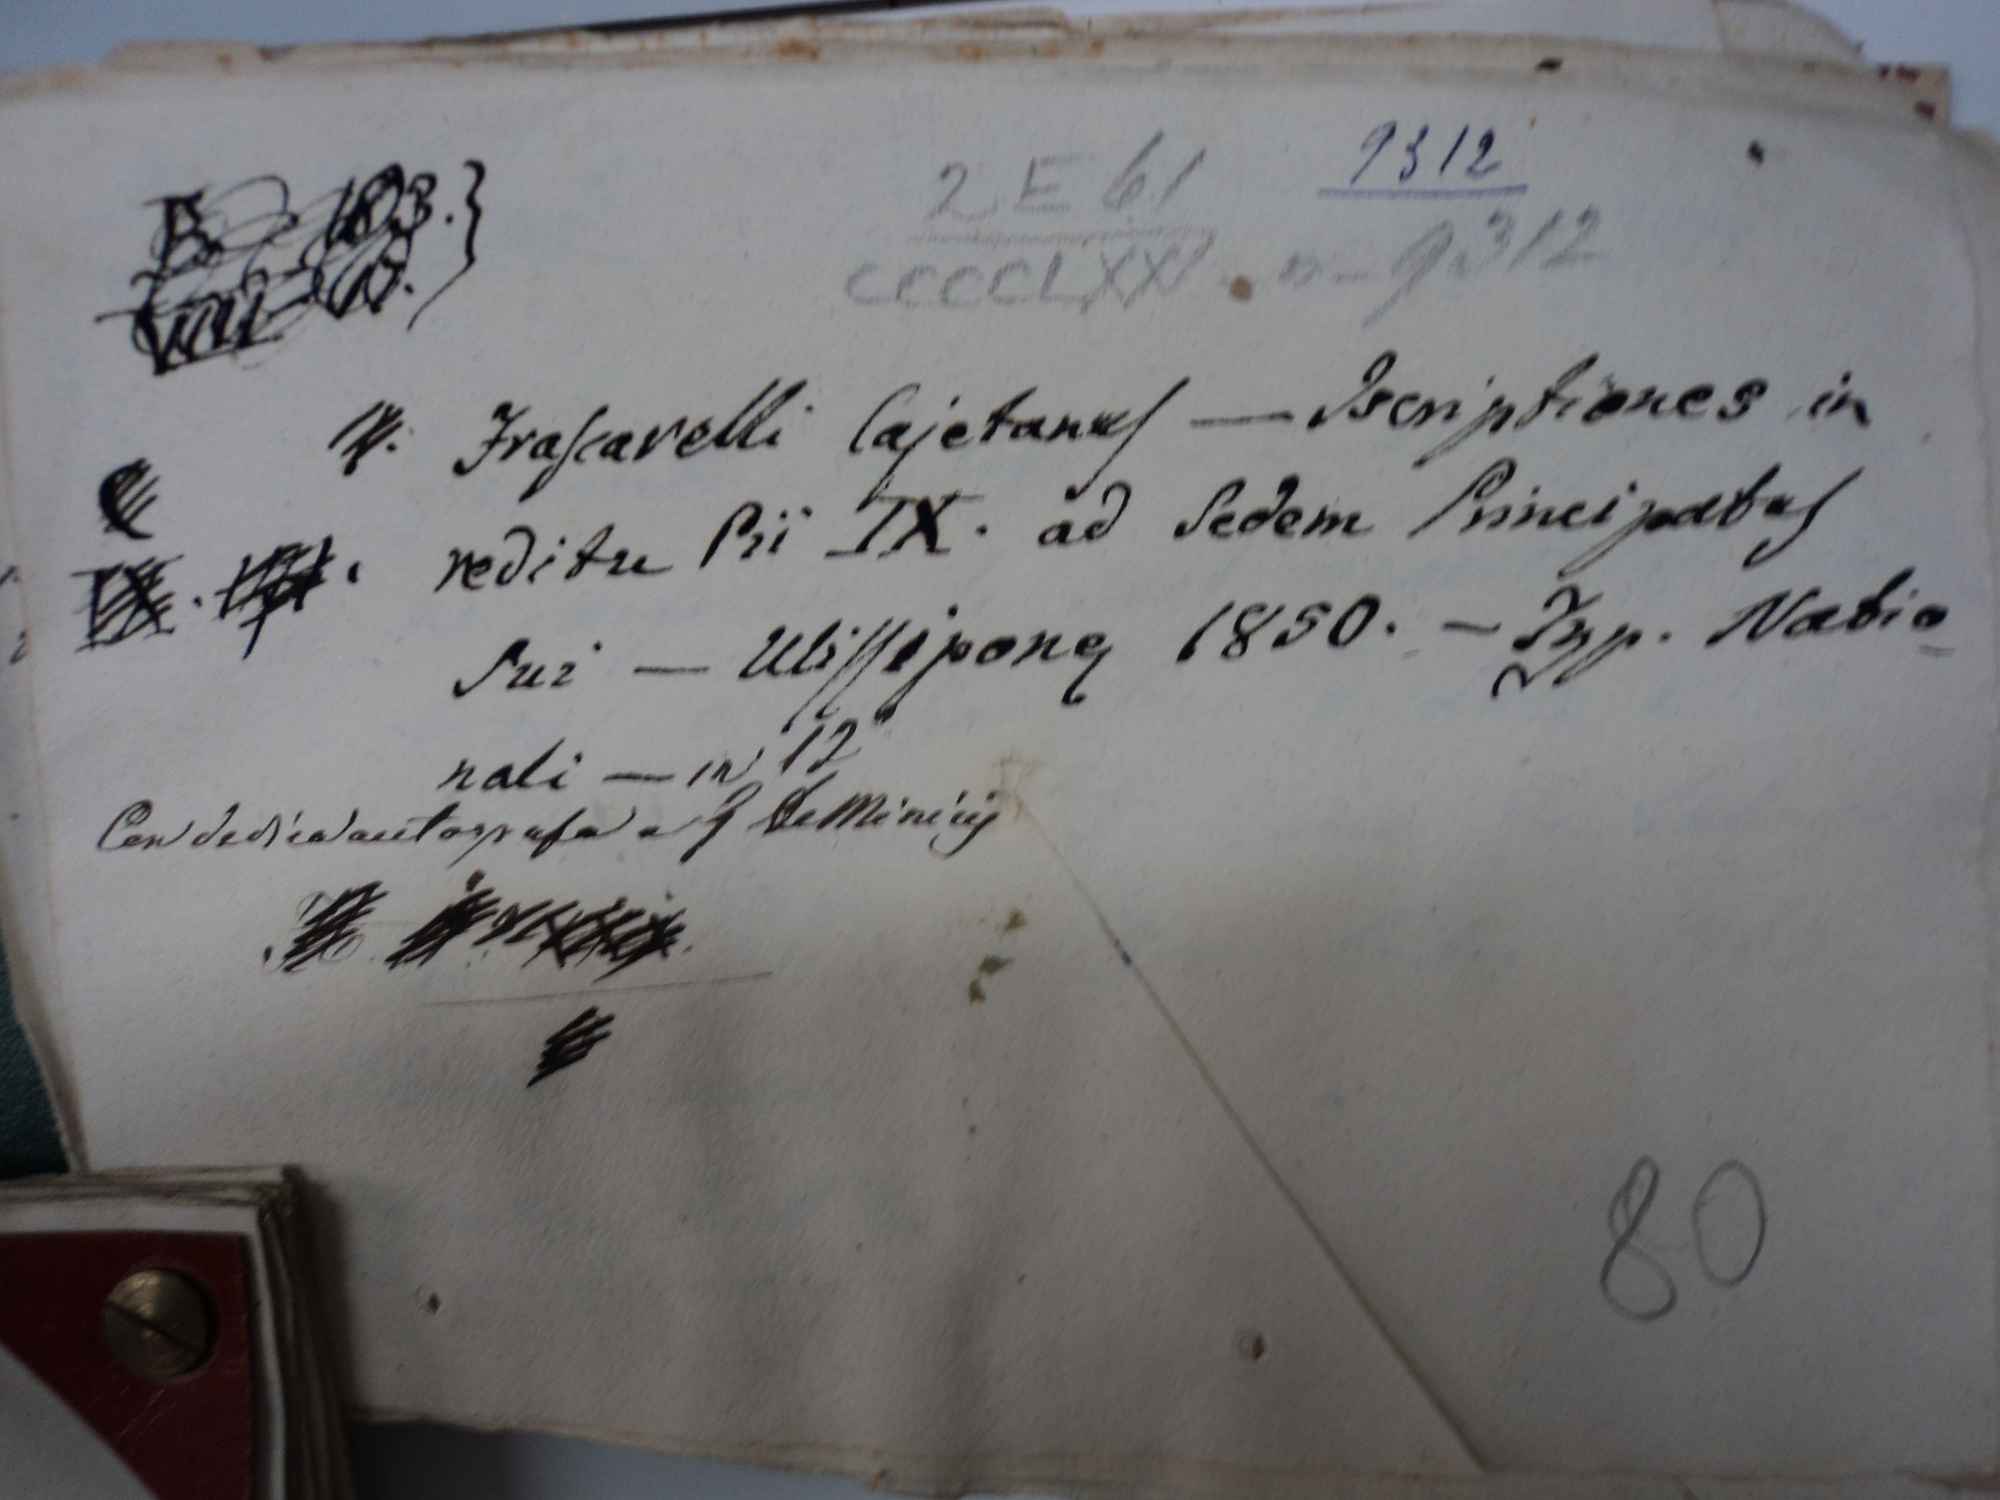 9312
2 E 61
CCCCCLXXI. n- 9312
Frascarelli Cajetanus — Iscriptiones in
reditu Pii IX. ad Sedem Principatus
Sui — Ulissipone 1850. — Typ. Natio=
nali — in 12°
Con dedica autografa a G De Minicis
80